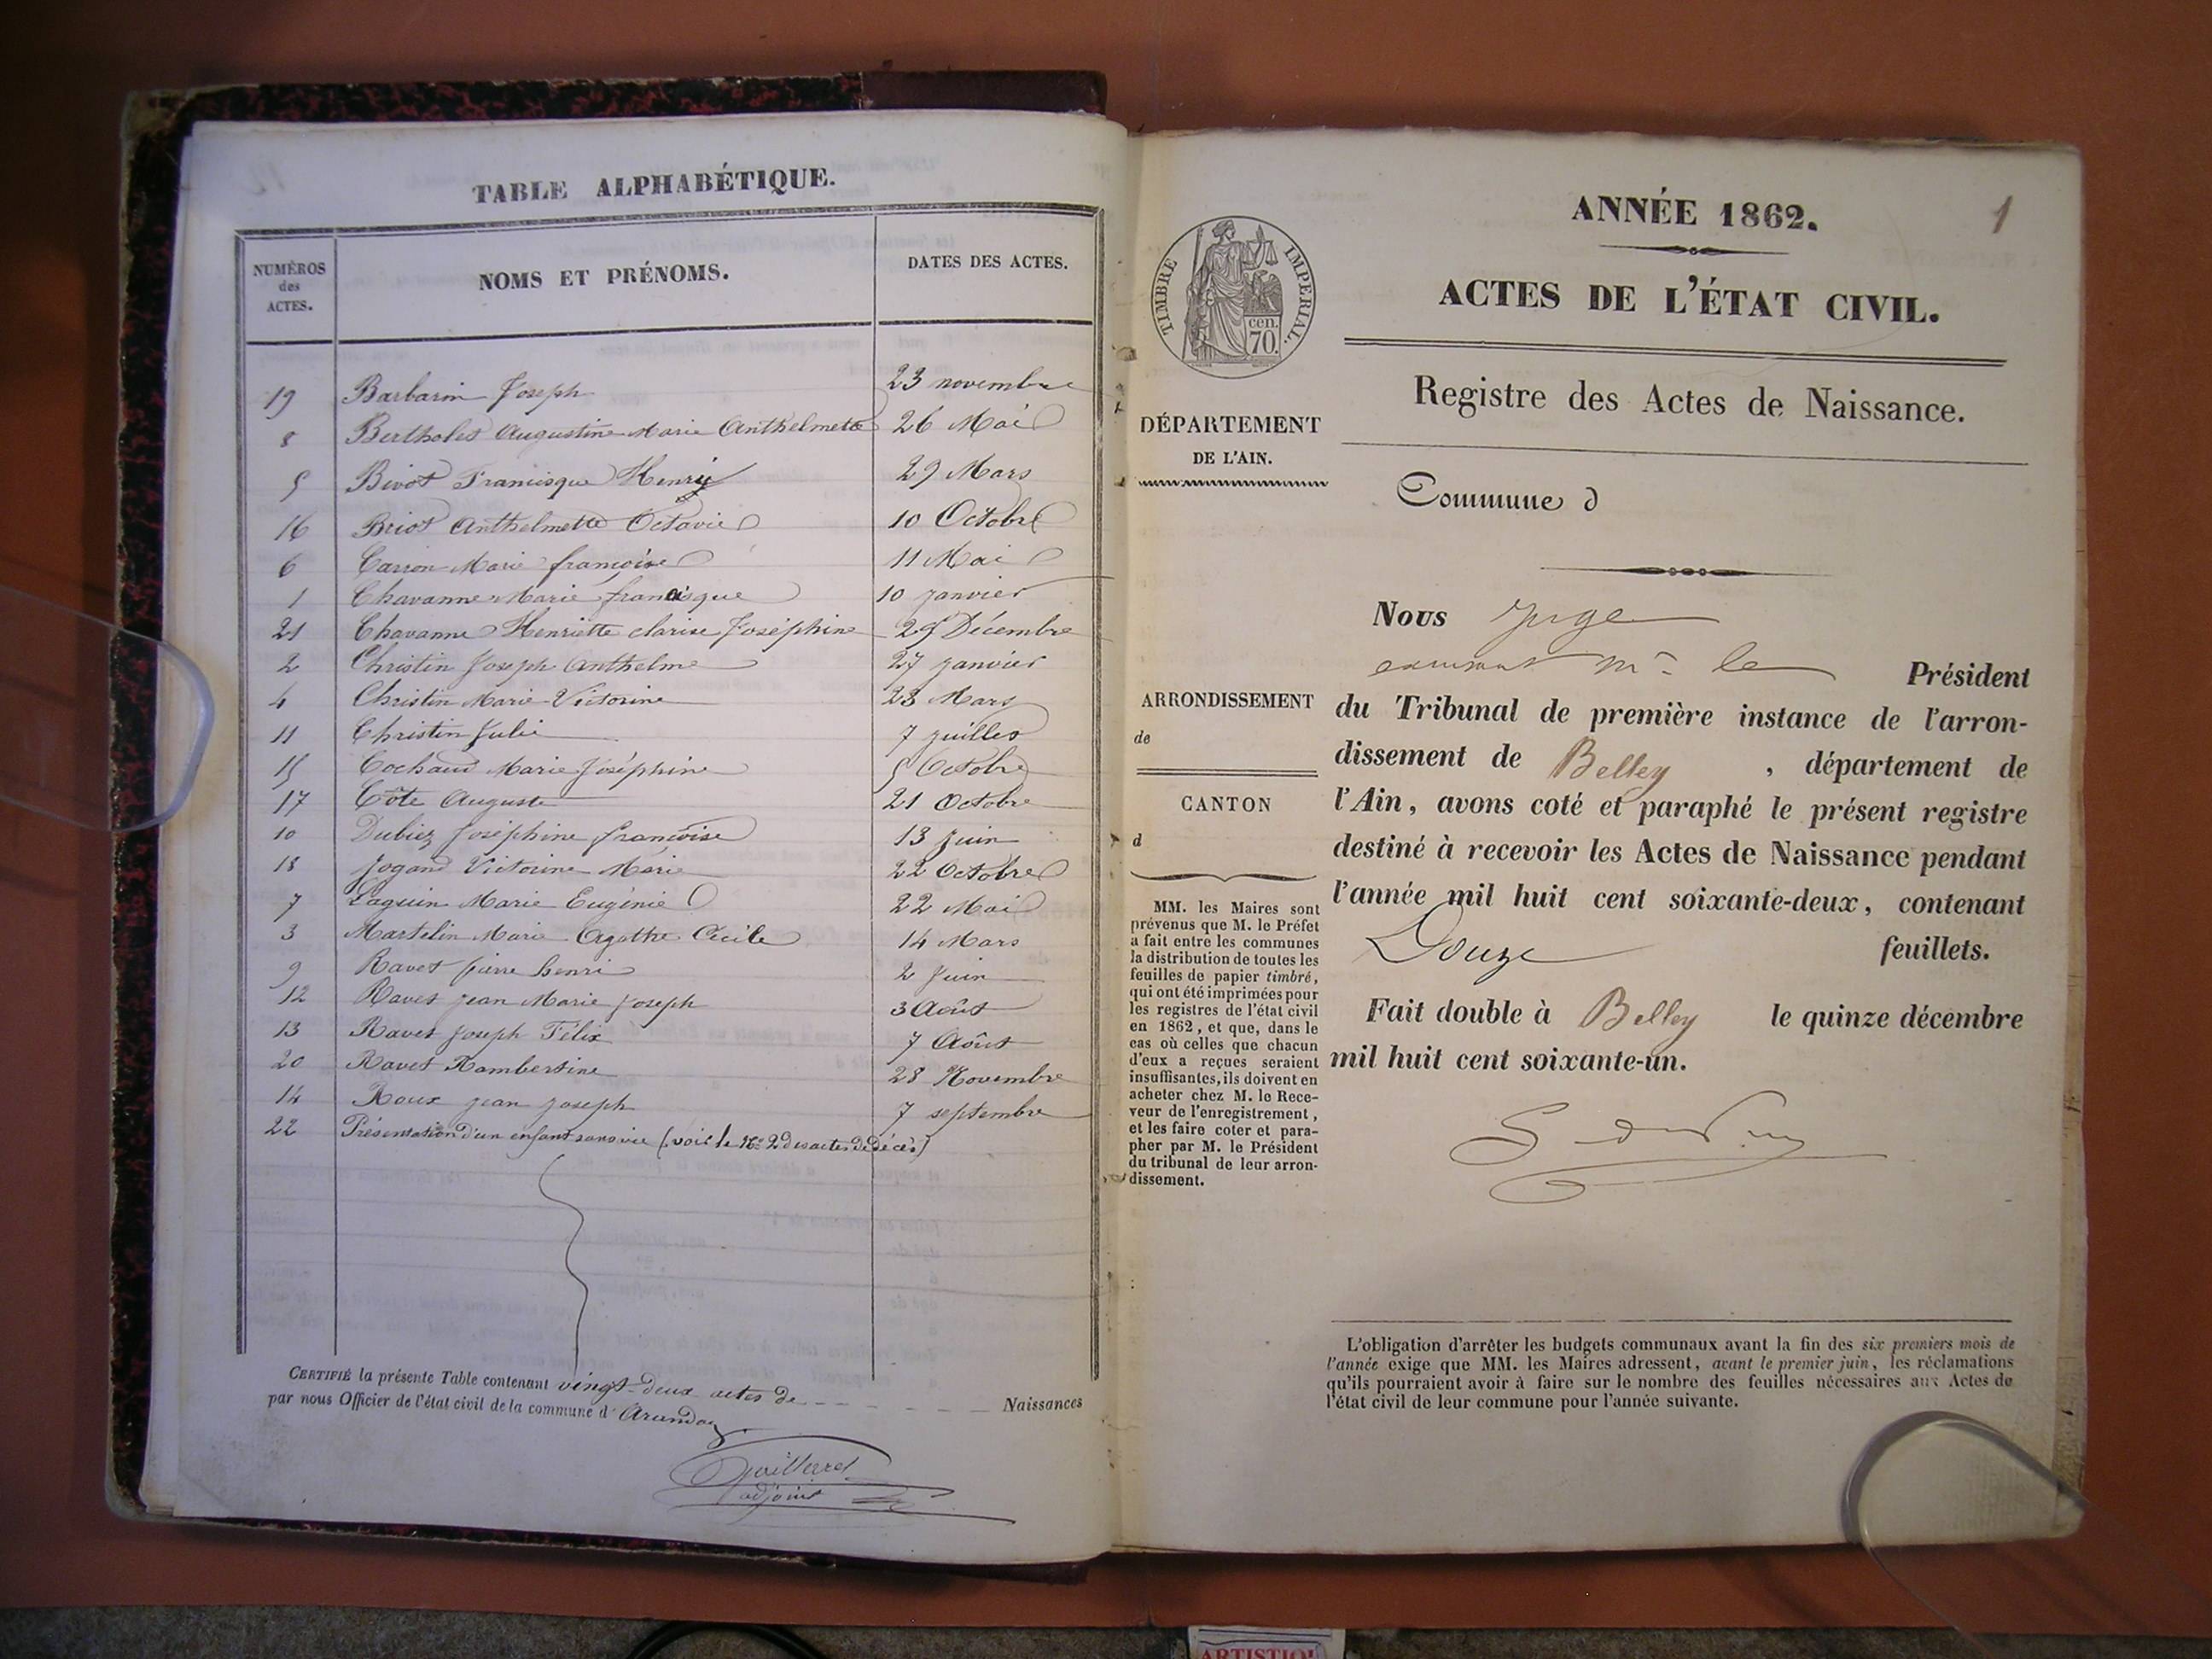 TABLE ALPHABÉTIQUE.
NUMÉROS des ACTES. NOMS ET PRÉNOMS. DATES DES ACTES.
19 Barbarin Joseph 23 novembre
8 Bertholet Augustine Marie Anthelmette 26 Mai
5 Bivot Francisque Henry 29 Mars
16 Briot Anthelmette Octavie 10 Octobre
6 Carron Marie françoise 11 Mai
1 Chavanne Marie francisque 10 janvier
21 Chavanne Henriette clarise Joséphine 25 Décembre
2 Christin Joseph Anthelme 27 janvier
4 Christin Marie Victorine 23 Mars
11 Christin Julie 7 juillet
15 Cochand Marie Joséphine 5 Octobre
17 Côte Auguste 21 Octobre
10 Dubiez Joséphine françoise 13 Juin
18 Jogand Victorine Marie 22 Octobre
7 Laguin Marie Eugénie 22 Mai
3 Martelin Marie Agathe Cécile 14 Mars
9 Ravet pierre henri 2 Juin
12 Ravet jean Marie Joseph 3 Août
13 Ravet Joseph Félix 7 Août
20 Ravet Rambertine 28 Novembre
14 Roux jean joseph 7 septembre
22 Présentation d'un enfant sans vie (voir le No 2 des actes de décès)
CERTIFIÉ la présente Table contenant vingt-deux actes de Naissances
par nous Officier de l'état civil de la commune d'
adjoint
1
ANNÉE 1862.
ACTES DE L'ÉTAT CIVIL.
Registre des Actes de Naissance.
TIMBRE IMPERIAL.
cen.
70.
DÉPARTEMENT
DE L'AIN.
Commune d
Nous Juge
Mr le Président
du Tribunal de première instance de l'arron-
dissement de Belley, département de
l'Ain, avons coté et paraphé le présent registre
destiné à recevoir les Actes de Naissance pendant
l'année mil huit cent soixante-deux, contenant
Douze feuillets.
Fait double à Belley le quinze décembre
mil huit cent soixante-un.
ARRONDISSEMENT
de
CANTON
d
MM. les Maires sont
prévenus que M. le Préfet
a fait entre les communes
la distribution de toutes les
feuilles de papier timbré,
qui ont été imprimées pour
les registres de l'état civil
en 1862, et que, dans le
cas où celles que chacun
d'eux a reçues seraient
insuffisantes, ils doivent en
acheter chez M. le Rece-
veur de l'enregistrement,
et les faire coter et para-
pher par M. le Président
du tribunal de leur arron-
dissement.
L'obligation d'arrêter les budgets communaux avant la fin des six premiers mois de
l'année exige que MM. les Maires adressent, avant le premier juin, les réclamations
qu'ils pourraient avoir à faire sur le nombre des feuilles nécessaires aux Actes de
l'état civil de leur commune pour l'année suivante.